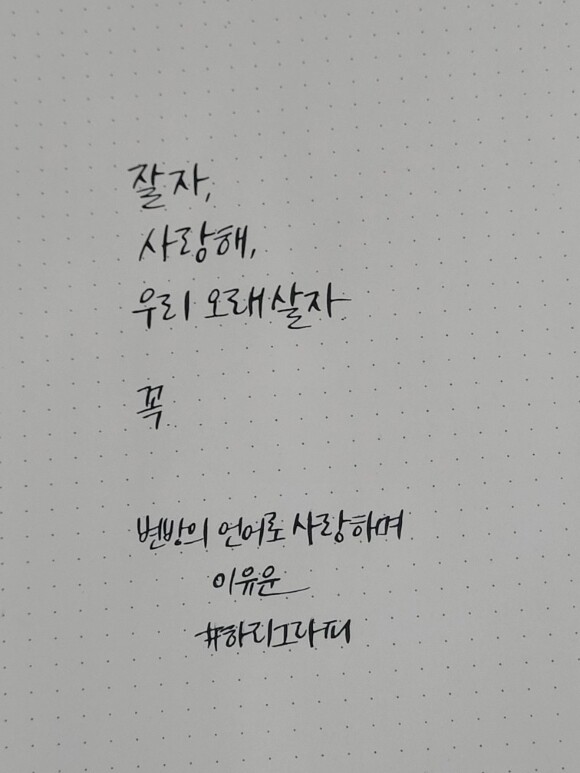 잘자,
사랑해,
우리 오래 살자
꼭
변방의 언어로 사랑하며
이유운
#하리그라피